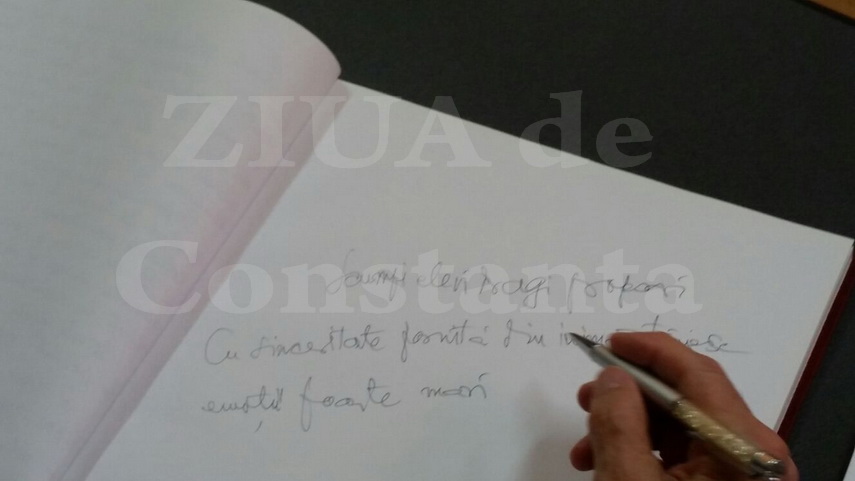 ZIUA de
Constanta
Scumpi elevi, dragi profesori
Cu sinceritate pornită din inimă trăiesc
emoții foarte mari